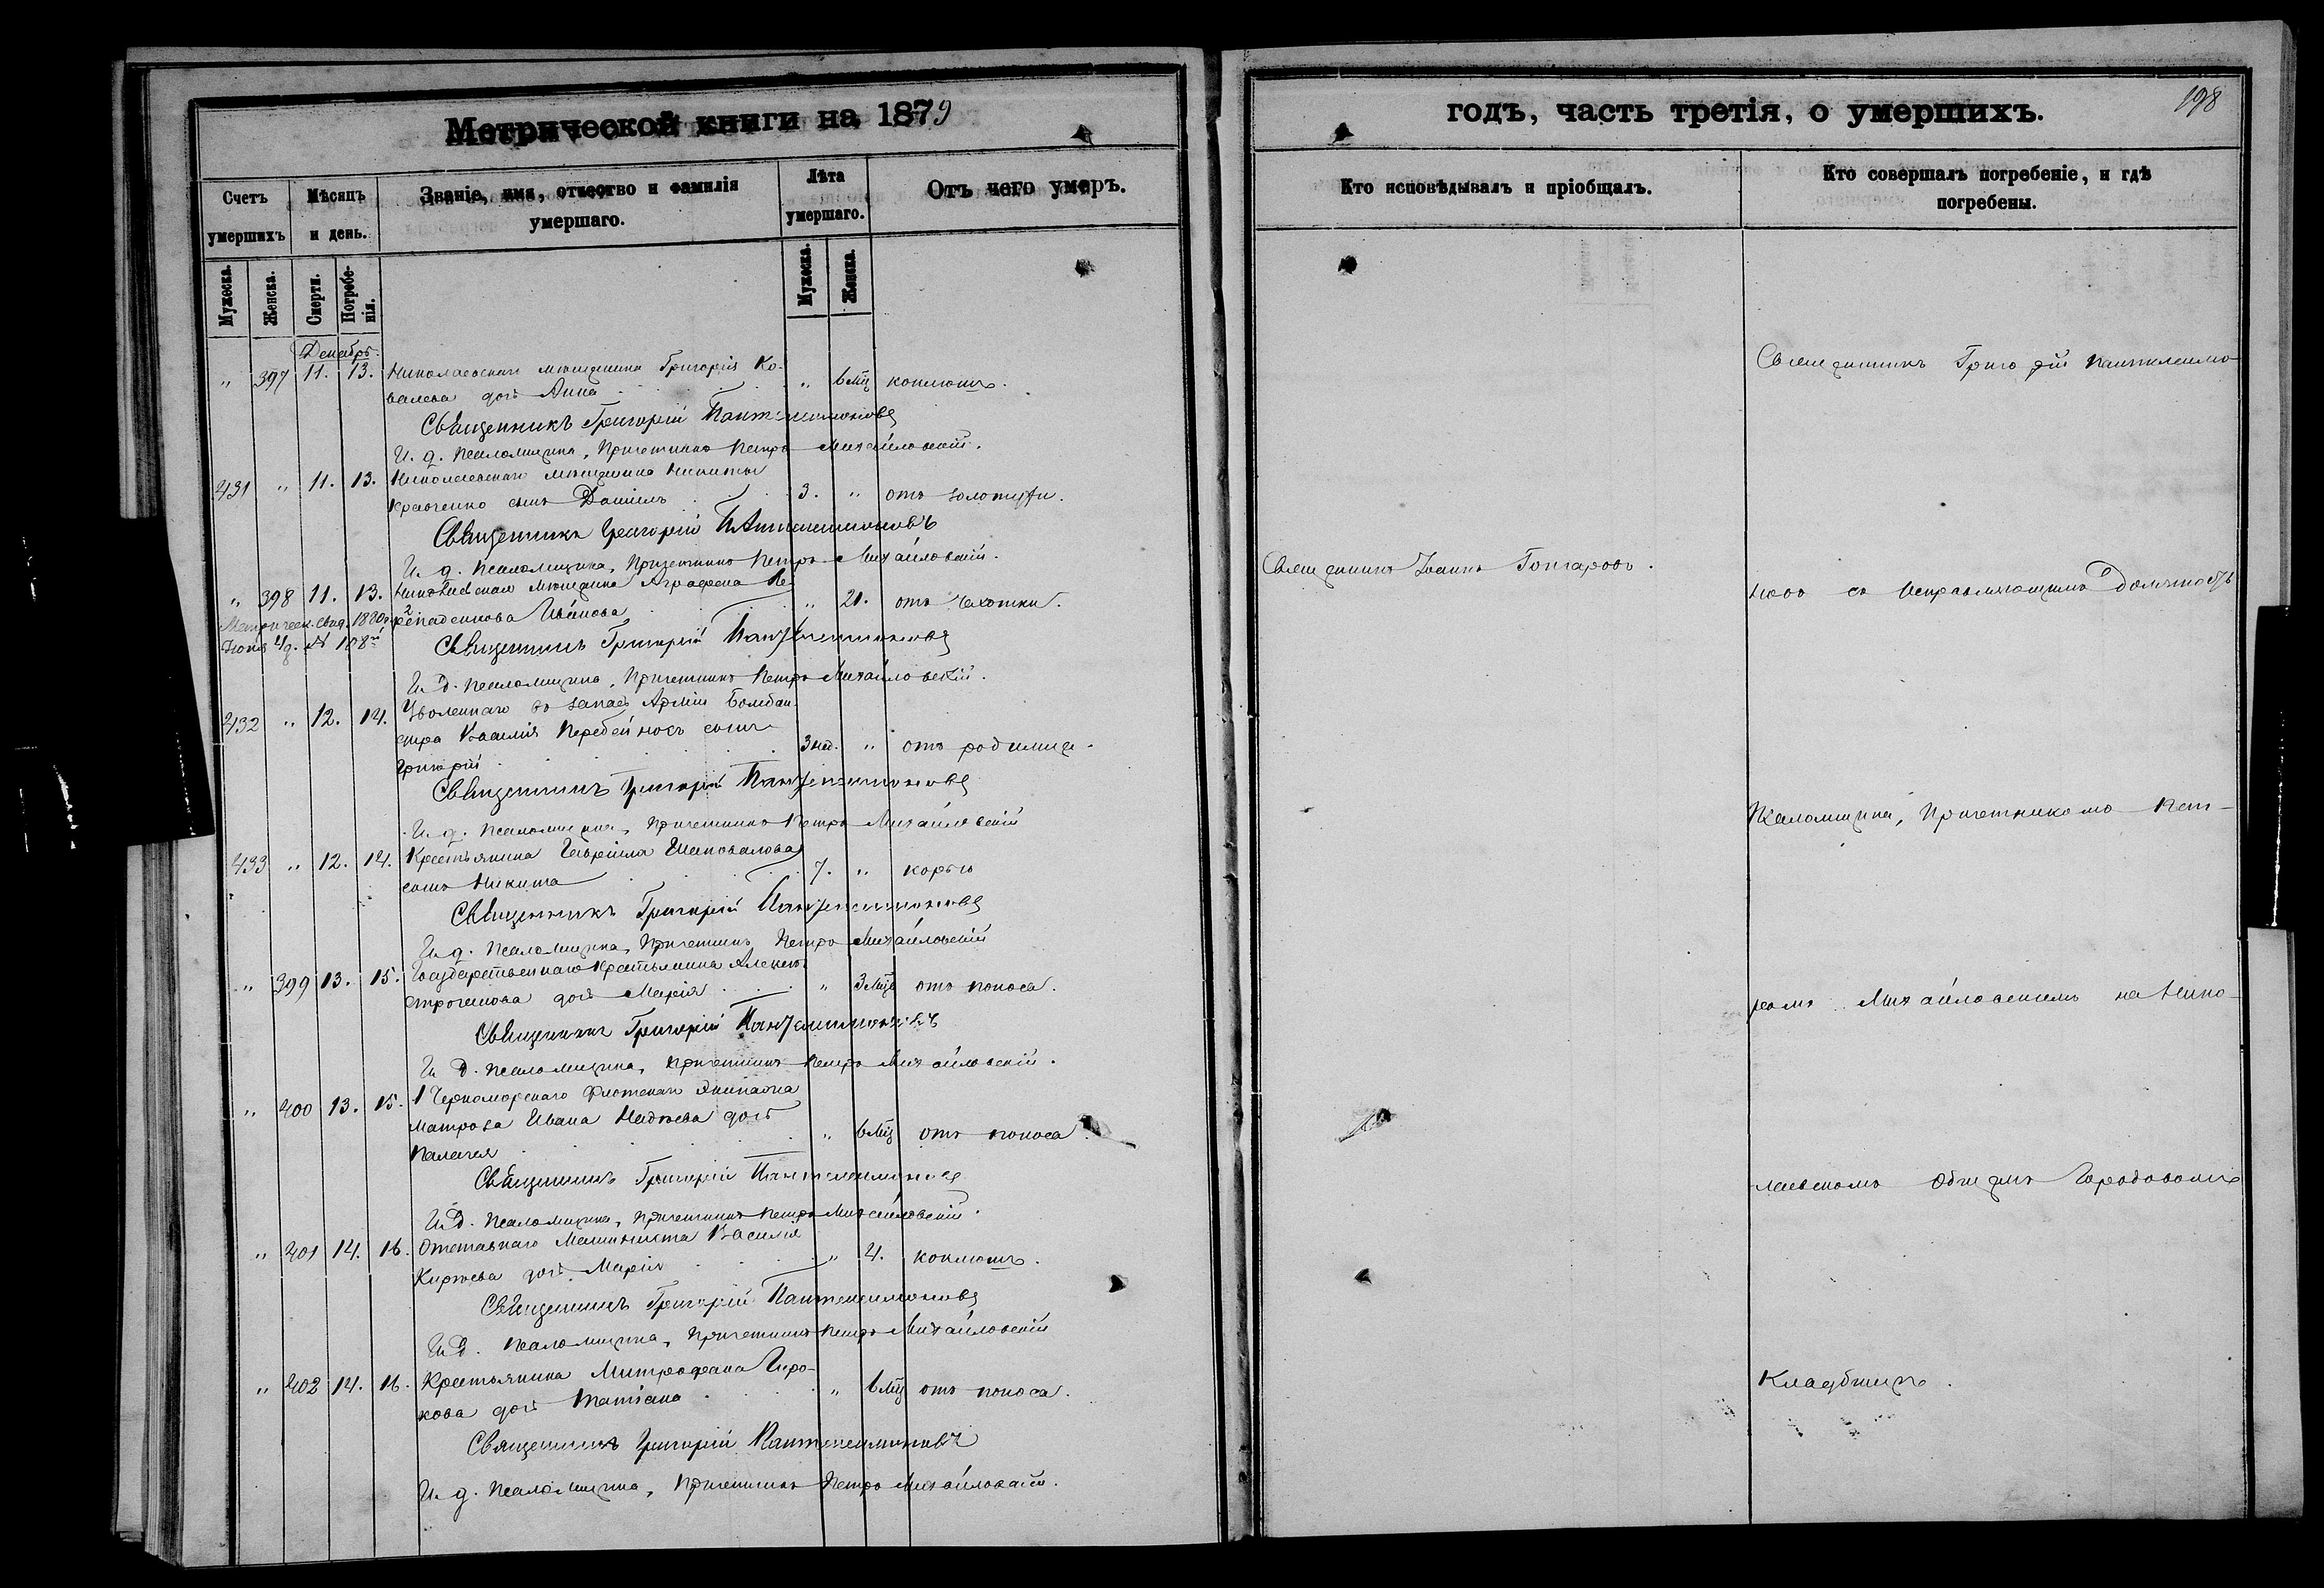 Метрической книги на 1879
Счетъ умершихъ
Мѣсяцъ и день.
Званіе, имя, отчество и фамилія умершаго.
Лѣта умершаго.
Отъ чего умеръ.
Мужеска. Женска. Смерти. Погребенія. Мужеска. Женска.
Декабрь
" 397 11. 13. Николаевскаго мѣщанина Григорія Ко-
валева дочь Анна " 6 мц коклюшъ.
Священникъ Григорій Пантелеимоновъ
И. д. Псаломщика, Причетникъ Петръ Михайловскій.
431 " 11. 13. Николаевскаго мѣщанина Никиты
Кравченко сынъ Даніилъ 3. " отъ золотухи.
Священникъ Григорій Пантелеимоновъ
И. д. Псаломщика, Причетникъ Петръ Михайловскій.
" 398 11. 13. Николаевская мѣщанка Аграфена Ле-
Иванова " 21. отъ чахотки.
Метрическ. свид. 1880 г.
Священникъ Григорій Пантелеимоновъ
И. д. Псаломщика, Причетникъ Петръ Михайловскій.
432 " 12. 14. Уволеннаго въ запасъ Арміи Бомбан-
дира Василія Перебейносъ сынъ
Григорій 3 нед. " отъ родимца.
Священникъ Григорій Пантелеимоновъ
И. д. Псаломщика, Причетникъ Петръ Михайловскій
433 " 12. 14. Крестьянина Гавріила Шаповалова
сынъ Никита 7. " корью
Священникъ Григорій Пантелеимоновъ
И. д. Псаломщика, Причетникъ Петръ Михайловскій
" 399 13. 15. Государственнаго крестьянина Алексѣя
дочь Марія " 3 мц отъ поноса.
Священникъ Григорій Пантелеимоновъ
И. д. Псаломщика, Причетникъ Петръ Михайловскій.
" 400 13. 15. 1 Черноморскаго Флотскаго Экипажа
матроса Ивана дочь
Пелагея " 6 мц отъ поноса.
Священникъ Григорій Пантелеимоновъ
И. д. Псаломщика, Причетникъ Петръ Михайловскій.
" 401 14. 16. Отставнаго Машиниста Василія
Киржева дочь Марія " 4. коклюшъ.
Священникъ Григорій Пантелеимоновъ
И. д. Псаломщика, Причетникъ Петръ Михайловскій
" 402 14. 16. Крестьянина Митрофана Гиро-
кова дочь Татіана " 6 мц отъ поноса.
Священникъ Григорій Пантелеимоновъ
И. д. Псаломщика, Причетникъ Петръ Михайловскій.
годъ, часть третія, о умершихъ.
198
Кто исповѣдывалъ и пріобщалъ.
Кто совершалъ погребеніе, и гдѣ погребены.
Священникъ Іоаннъ Гончаровъ.
Священникъ Григорій Пантелеимо-
новъ съ Исправляющимъ Должность
Псаломщика, Причетникомъ Пет-
ромъ Михайловскимъ на Нико-
лаевскомъ общемъ Городовомъ
Кладбищѣ.